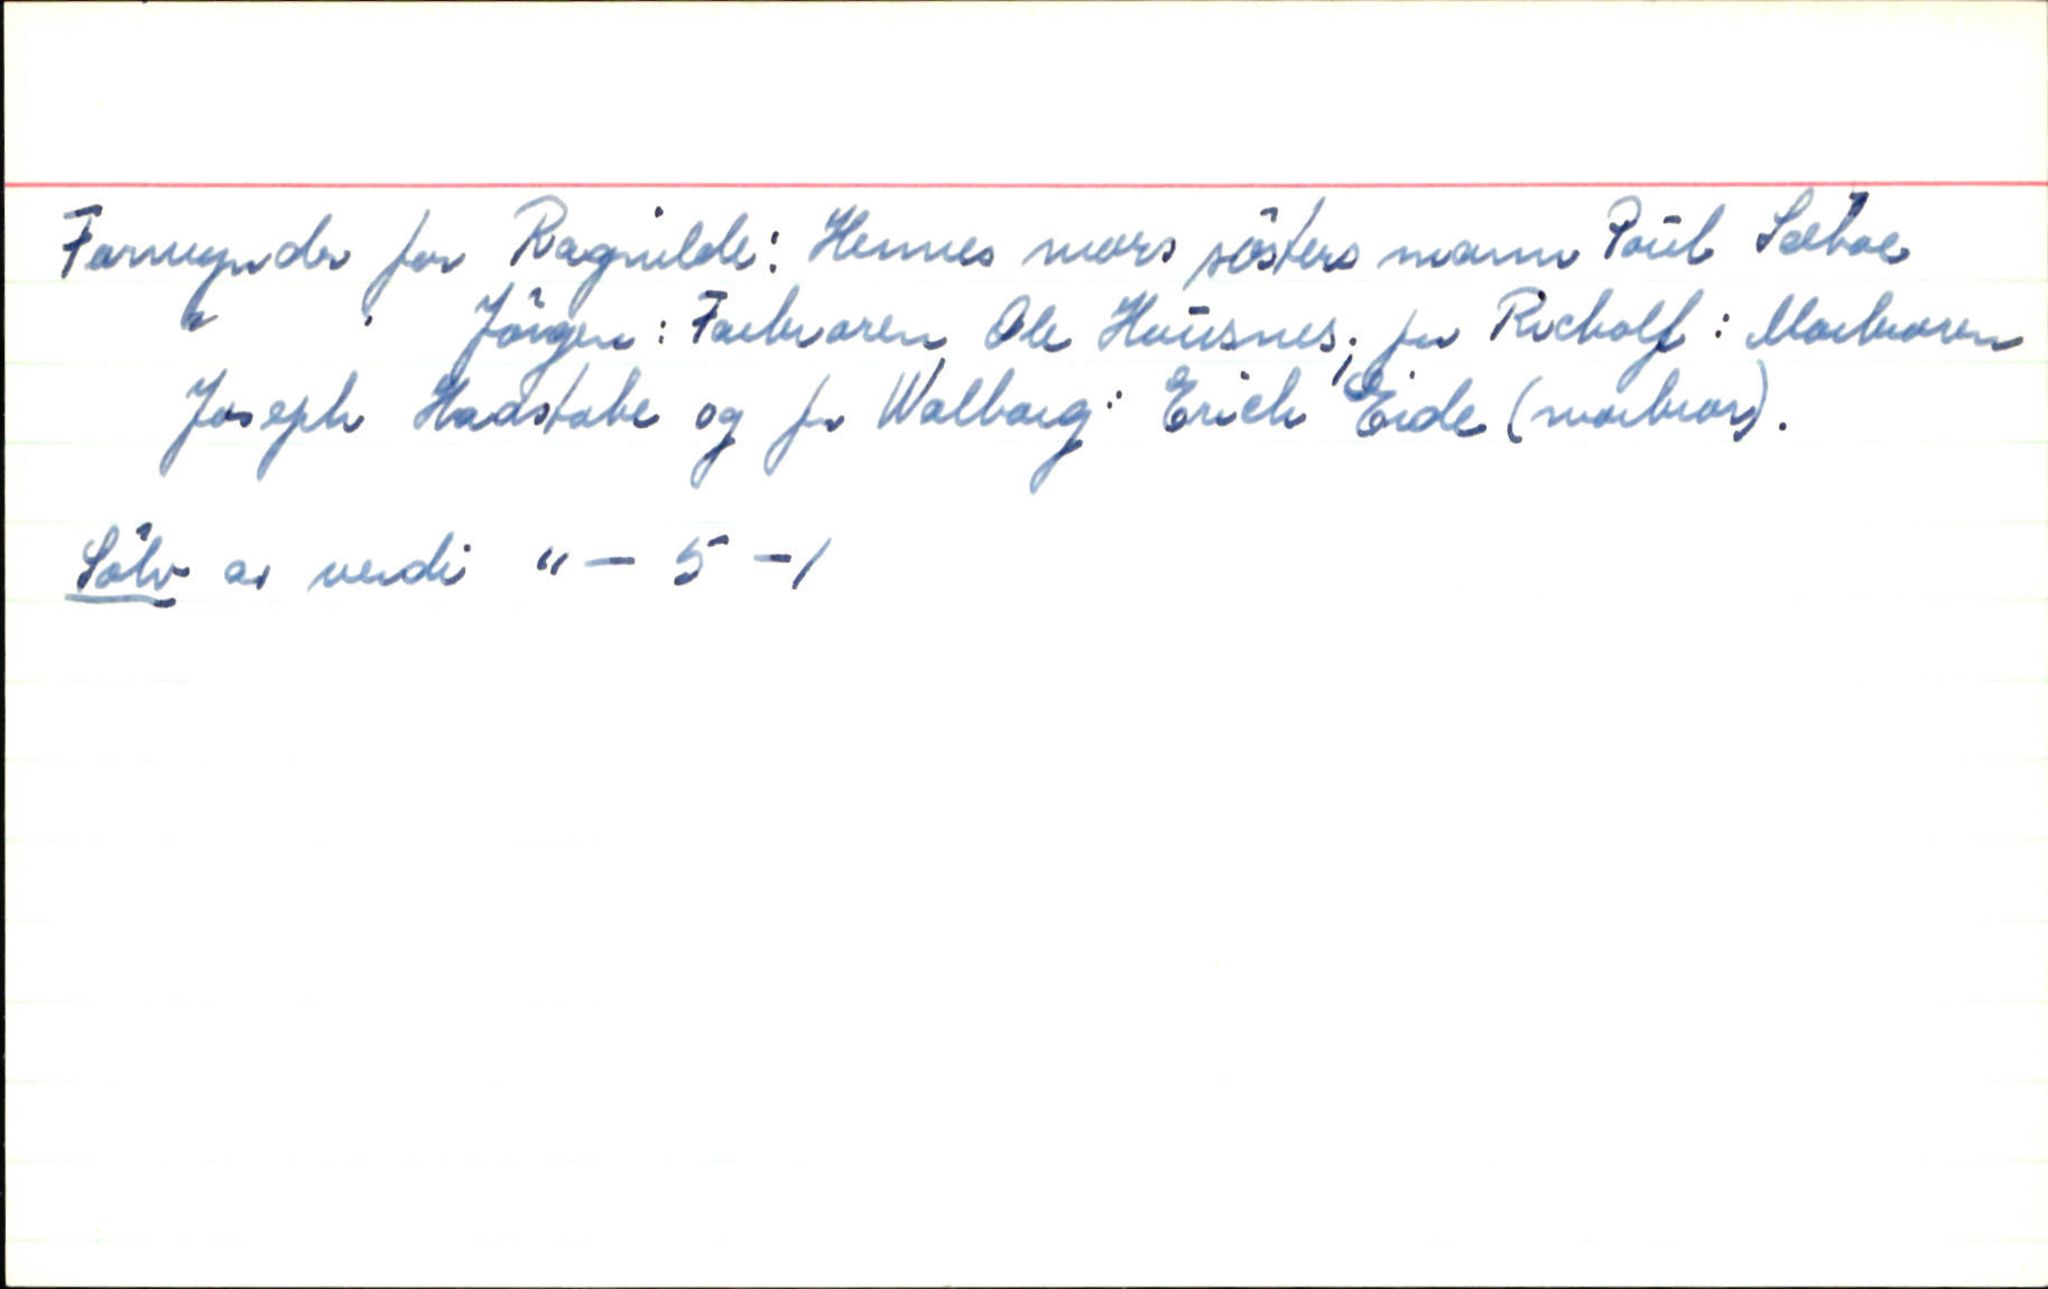 Formynder for Ragnilde: Hennes mors sösters mann Poül Sæboe
" " Jörgen: Farbroren Ole Houüsnes; for Richolf: Morbroren
Joseph Haastabe og for Walborg: Erich Eide (morbror).
Sölv av verdi "- 5 -/